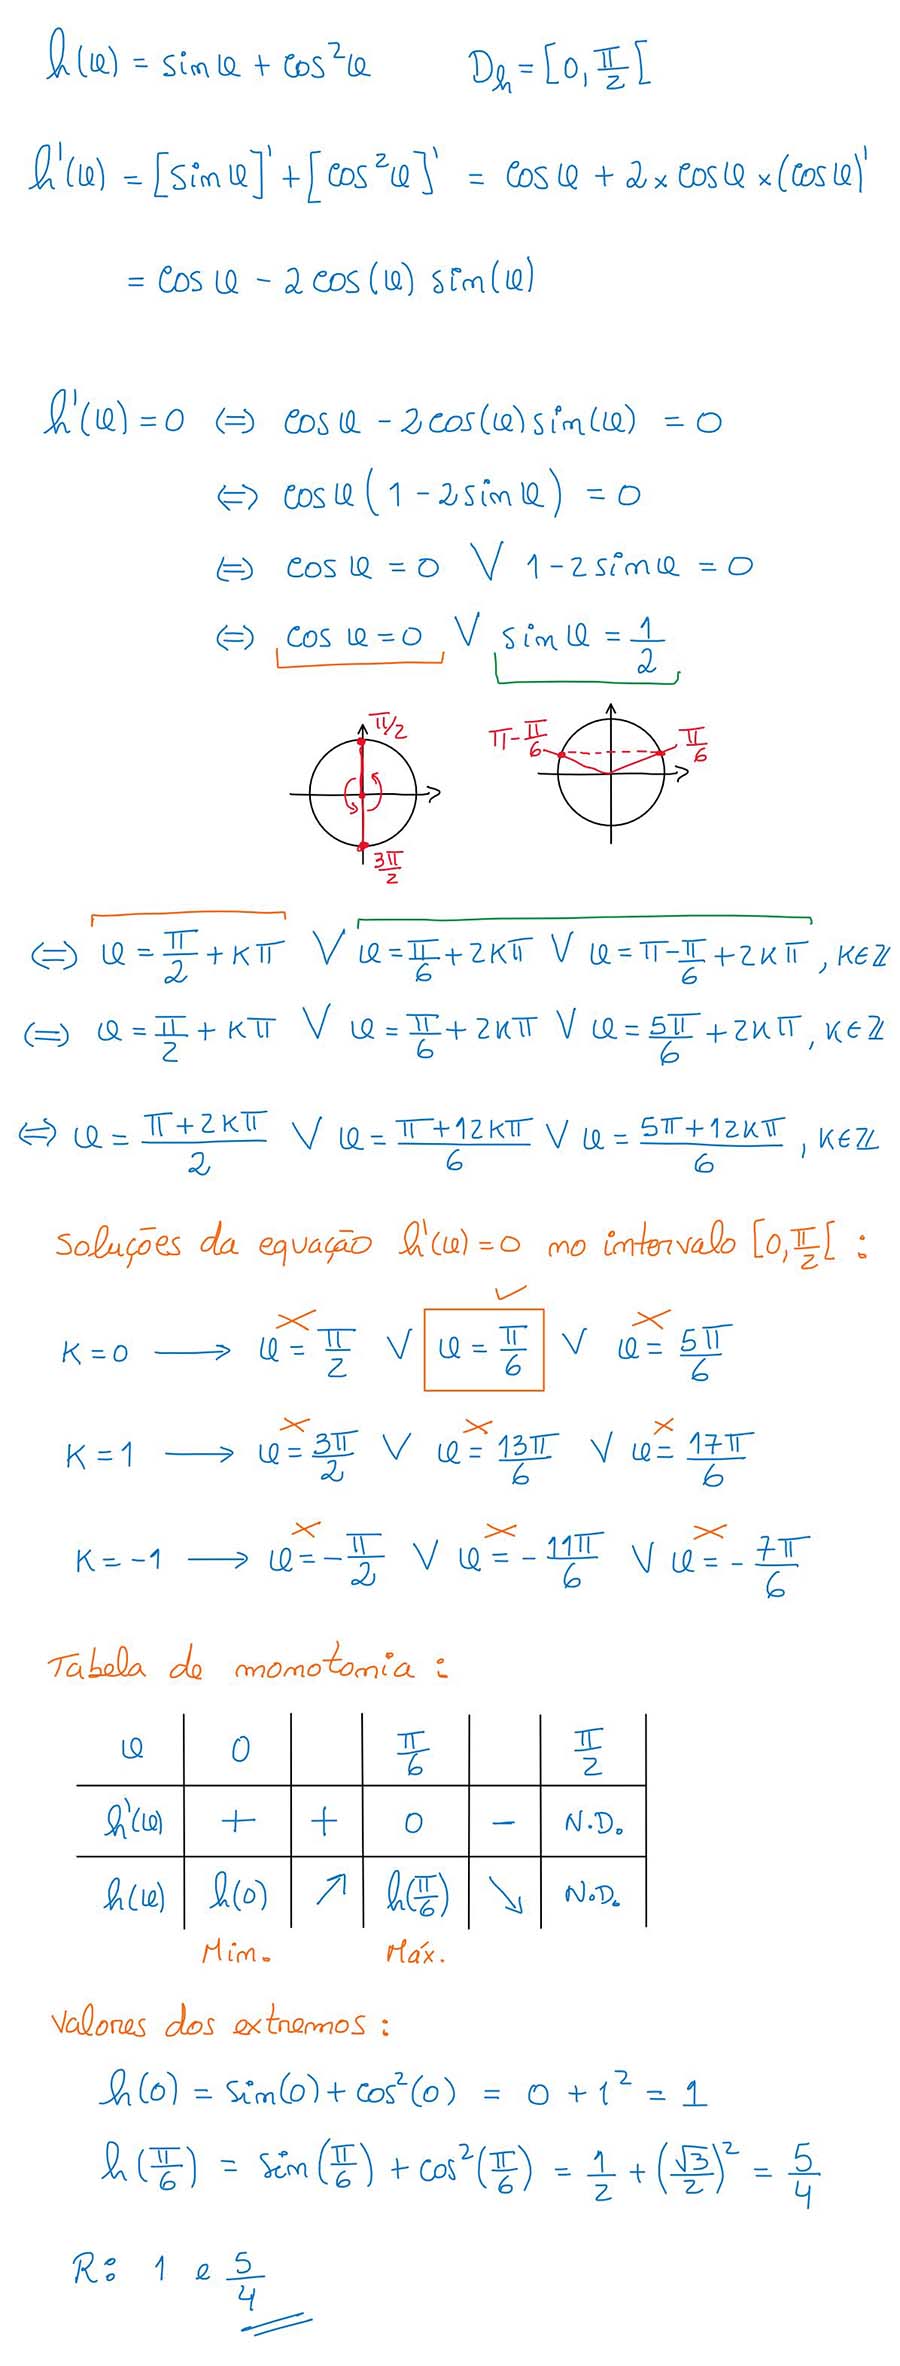 h(x) = sin x + cos²x     D_h = [0, π/2[
h'(x) = [sin x]' + [cos²x]' = cos x + 2 × cos x × (cos x)'
= cos x − 2 cos(x) sin(x)
h'(x) = 0 ⇔ cos x − 2 cos(x) sin(x) = 0
⇔ cos x (1 − 2 sin x) = 0
⇔ cos x = 0 ∨ 1 − 2 sin x = 0
⇔ cos x = 0 ∨ sin x = 1/2
π/2     π − π/6     π/6
3π/2
⇔ x = π/2 + kπ ∨ x = π/6 + 2kπ ∨ x = π − π/6 + 2kπ, k∈ℤ
⇔ x = π/2 + kπ ∨ x = π/6 + 2kπ ∨ x = 5π/6 + 2kπ, k∈ℤ
⇔ x = (π + 2kπ)/2 ∨ x = (π + 12kπ)/6 ∨ x = (5π + 12kπ)/6, k∈ℤ
Soluções da equação h'(x) = 0 no intervalo [0, π/2[ :
k = 0 ⟶ x = π/2 ∨ x = π/6 ∨ x = 5π/6
k = 1 ⟶ x = 3π/2 ∨ x = 13π/6 ∨ x = 17π/6
k = −1 ⟶ x = −π/2 ∨ x = −11π/6 ∨ x = −7π/6
Tabela de monotomia :
x 0 π/6 π/2
h'(x) + + 0 − N.D.
h(x) h(0) ↗ h(π/6) ↘ N.D.
Mín. Máx.
Valores dos extremos :
h(0) = sin(0) + cos²(0) = 0 + 1² = 1
h(π/6) = sin(π/6) + cos²(π/6) = 1/2 + (√3/2)² = 5/4
R: 1 e 5/4